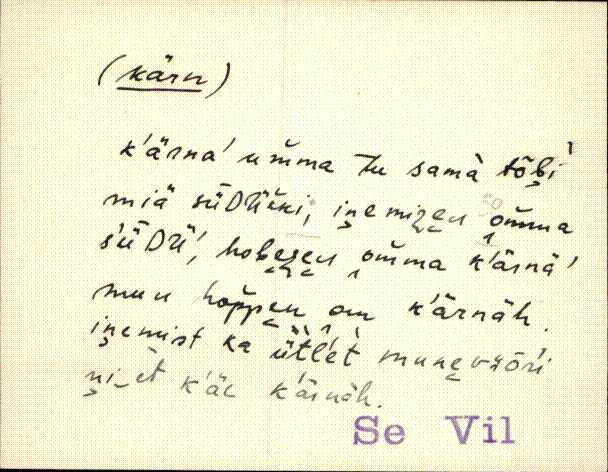 (kärn)
k'ärnä' ŭmma tu samà tõbi
miä süDüki, inemizen ŏmma
süDü', hobezen ŏmma k'ärnä'
mun hŏppen om k'ärnäh.
inemist ka ütlet mune võõri
ni-èt k'äe k'ärnäh.
Se Vil